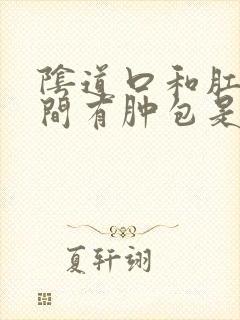 陰道口和肛
間有肿包是
夏轩翊